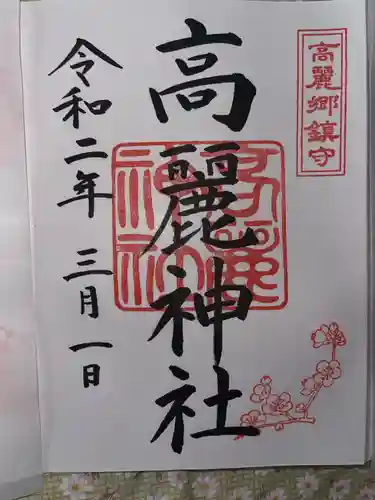 高麗郷鎮守
高麗神社
令和二年 三月一日
高麗神社